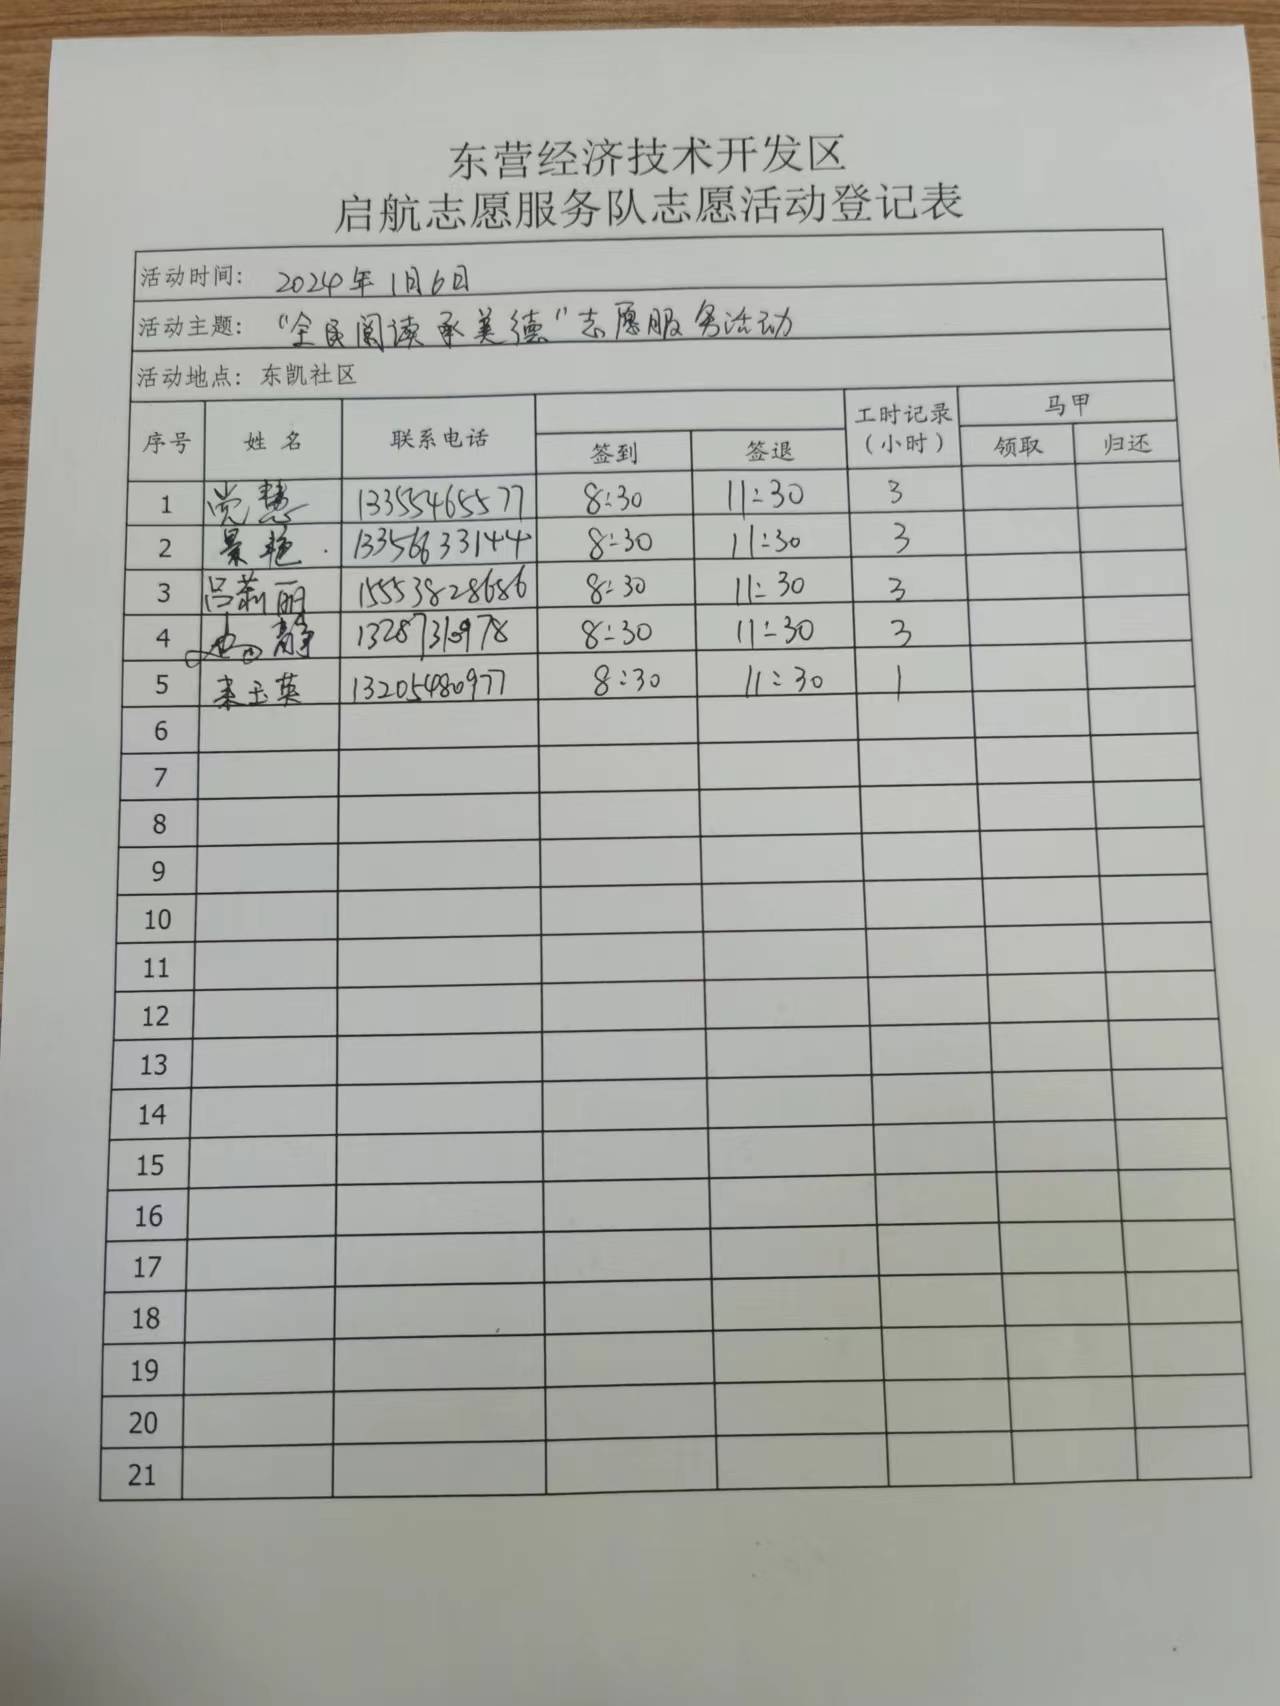 东营经济技术开发区
启航志愿服务队志愿活动登记表
活动时间： 2024年1月6日
活动主题： “全民阅读 承美德”志愿服务活动
活动地点：东凯社区
序号 姓名 联系电话 签到 签退 工时记录（小时） 马甲 领取 归还
1 党慧 13355465577 8:30 11:30 3
2 景艳 13356633144 8:30 11:30 3
3 吕莉丽 15553828686 8:30 11:30 3
4 静 8:30 11:30 3
5 玉英 13205480977 8:30 11:30 1
6
7
8
9
10
11
12
13
14
15
16
17
18
19
20
21